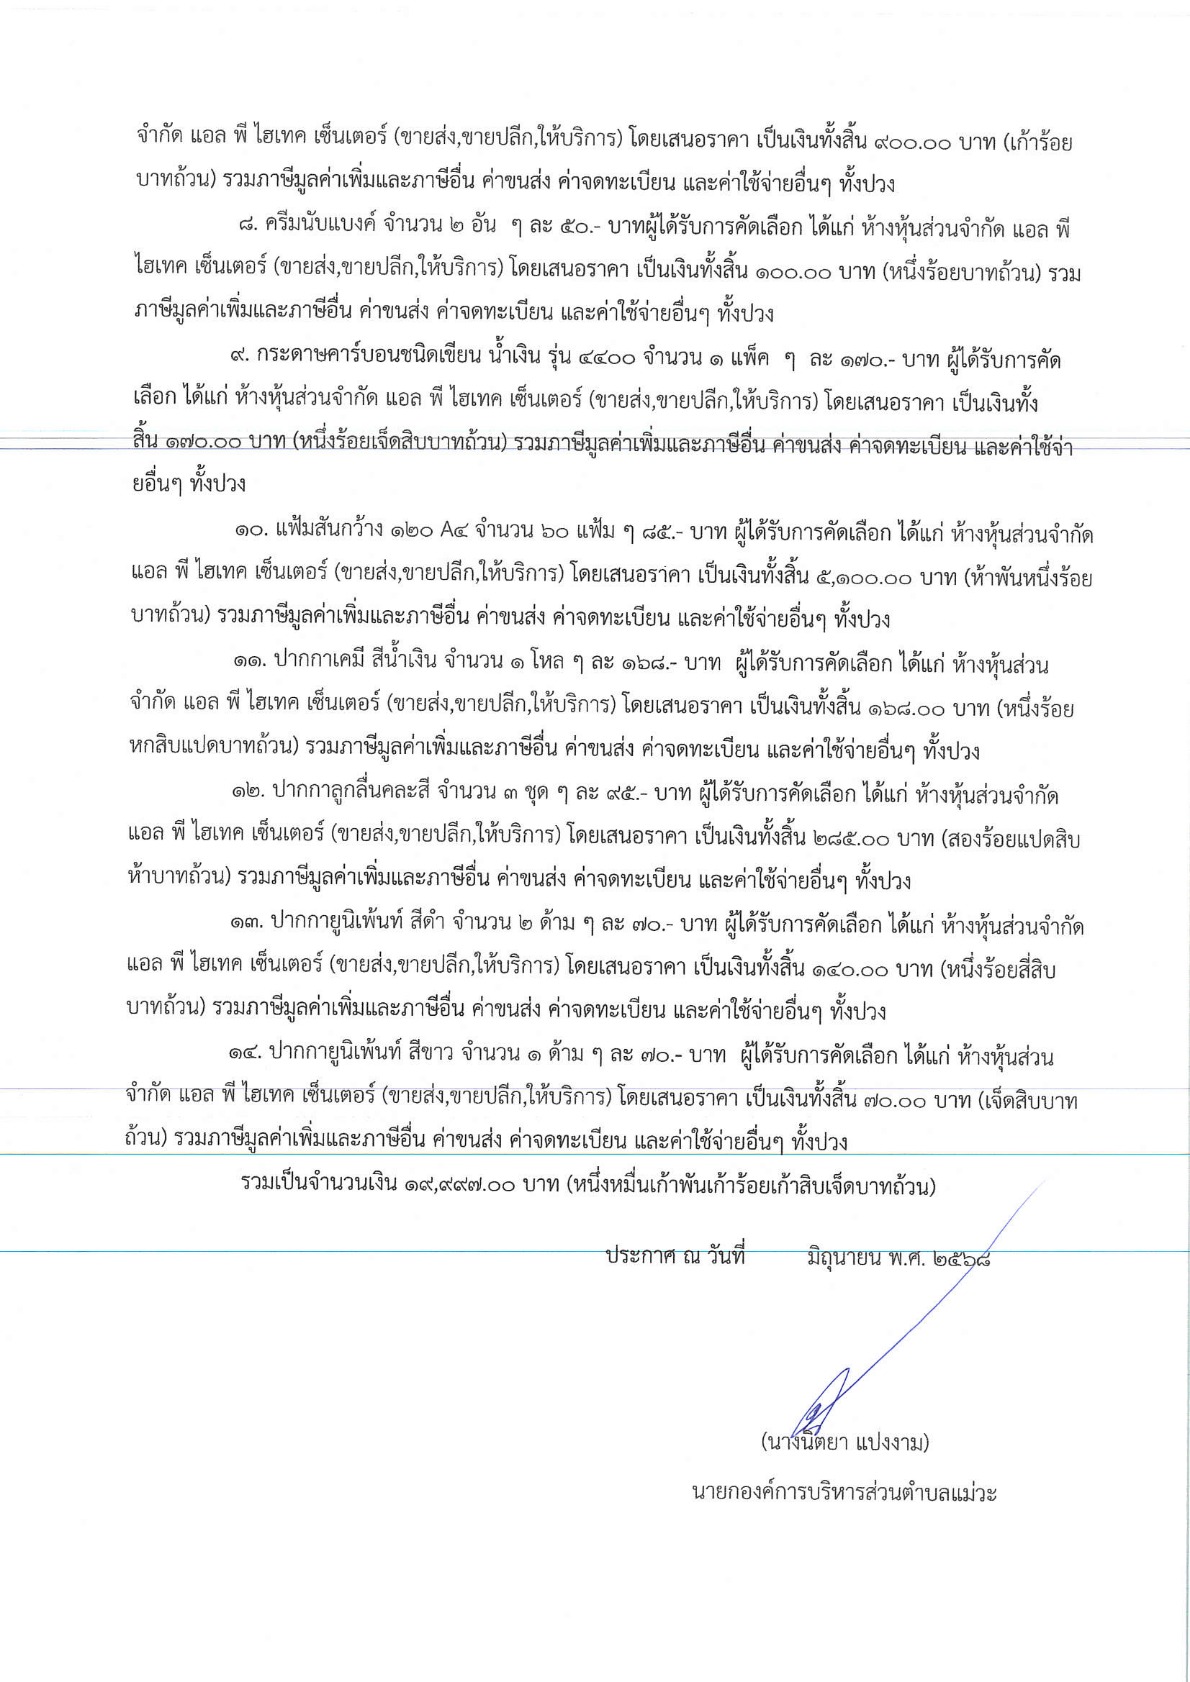 จำกัด แอล พี ไฮเทค เซ็นเตอร์ (ขายส่ง,ขายปลีก,ให้บริการ) โดยเสนอราคา เป็นเงินทั้งสิ้น ๙๐๐.๐๐ บาท (เก้าร้อย
บาทถ้วน) รวมภาษีมูลค่าเพิ่มและภาษีอื่น ค่าขนส่ง ค่าจดทะเบียน และค่าใช้จ่ายอื่นๆ ทั้งปวง
๘. ครีมนับแบงค์ จำนวน ๒ อัน ๆ ละ ๕๐.- บาทผู้ได้รับการคัดเลือก ได้แก่ ห้างหุ้นส่วนจำกัด แอล พี
ไฮเทค เซ็นเตอร์ (ขายส่ง,ขายปลีก,ให้บริการ) โดยเสนอราคา เป็นเงินทั้งสิ้น ๑๐๐.๐๐ บาท (หนึ่งร้อยบาทถ้วน) รวม
ภาษีมูลค่าเพิ่มและภาษีอื่น ค่าขนส่ง ค่าจดทะเบียน และค่าใช้จ่ายอื่นๆ ทั้งปวง
๙. กระดาษคาร์บอนชนิดเขียน น้ำเงิน รุ่น ๔๔๐๐ จำนวน ๑ แพ็ค ๆ ละ ๑๗๐.- บาท ผู้ได้รับการคัด
เลือก ได้แก่ ห้างหุ้นส่วนจำกัด แอล พี ไฮเทค เซ็นเตอร์ (ขายส่ง,ขายปลีก,ให้บริการ) โดยเสนอราคา เป็นเงินทั้ง
สิ้น ๑๗๐.๐๐ บาท (หนึ่งร้อยเจ็ดสิบบาทถ้วน) รวมภาษีมูลค่าเพิ่มและภาษีอื่น ค่าขนส่ง ค่าจดทะเบียน และค่าใช้จ่า
ยอื่นๆ ทั้งปวง
๑๐. แฟ้มสันกว้าง ๑๒๐ A๔ จำนวน ๖๐ แฟ้ม ๆ ๘๕.- บาท ผู้ได้รับการคัดเลือก ได้แก่ ห้างหุ้นส่วนจำกัด
แอล พี ไฮเทค เซ็นเตอร์ (ขายส่ง,ขายปลีก,ให้บริการ) โดยเสนอราคา เป็นเงินทั้งสิ้น ๕,๑๐๐.๐๐ บาท (ห้าพันหนึ่งร้อย
บาทถ้วน) รวมภาษีมูลค่าเพิ่มและภาษีอื่น ค่าขนส่ง ค่าจดทะเบียน และค่าใช้จ่ายอื่นๆ ทั้งปวง
๑๑. ปากกาเคมี สีน้ำเงิน จำนวน ๑ โหล ๆ ละ ๑๖๘.- บาท ผู้ได้รับการคัดเลือก ได้แก่ ห้างหุ้นส่วน
จำกัด แอล พี ไฮเทค เซ็นเตอร์ (ขายส่ง,ขายปลีก,ให้บริการ) โดยเสนอราคา เป็นเงินทั้งสิ้น ๑๖๘.๐๐ บาท (หนึ่งร้อย
หกสิบแปดบาทถ้วน) รวมภาษีมูลค่าเพิ่มและภาษีอื่น ค่าขนส่ง ค่าจดทะเบียน และค่าใช้จ่ายอื่นๆ ทั้งปวง
๑๒. ปากกาลูกลื่นคละสี จำนวน ๓ ชุด ๆ ละ ๙๕.- บาท ผู้ได้รับการคัดเลือก ได้แก่ ห้างหุ้นส่วนจำกัด
แอล พี ไฮเทค เซ็นเตอร์ (ขายส่ง,ขายปลีก,ให้บริการ) โดยเสนอราคา เป็นเงินทั้งสิ้น ๒๘๕.๐๐ บาท (สองร้อยแปดสิบ
ห้าบาทถ้วน) รวมภาษีมูลค่าเพิ่มและภาษีอื่น ค่าขนส่ง ค่าจดทะเบียน และค่าใช้จ่ายอื่นๆ ทั้งปวง
๑๓. ปากกายูนิเพ้นท์ สีดำ จำนวน ๒ ด้าม ๆ ละ ๗๐.- บาท ผู้ได้รับการคัดเลือก ได้แก่ ห้างหุ้นส่วนจำกัด
แอล พี ไฮเทค เซ็นเตอร์ (ขายส่ง,ขายปลีก,ให้บริการ) โดยเสนอราคา เป็นเงินทั้งสิ้น ๑๔๐.๐๐ บาท (หนึ่งร้อยสี่สิบ
บาทถ้วน) รวมภาษีมูลค่าเพิ่มและภาษีอื่น ค่าขนส่ง ค่าจดทะเบียน และค่าใช้จ่ายอื่นๆ ทั้งปวง
๑๔. ปากกายูนิเพ้นท์ สีขาว จำนวน ๑ ด้าม ๆ ละ ๗๐.- บาท ผู้ได้รับการคัดเลือก ได้แก่ ห้างหุ้นส่วน
จำกัด แอล พี ไฮเทค เซ็นเตอร์ (ขายส่ง,ขายปลีก,ให้บริการ) โดยเสนอราคา เป็นเงินทั้งสิ้น ๗๐.๐๐ บาท (เจ็ดสิบบาท
ถ้วน) รวมภาษีมูลค่าเพิ่มและภาษีอื่น ค่าขนส่ง ค่าจดทะเบียน และค่าใช้จ่ายอื่นๆ ทั้งปวง
รวมเป็นจำนวนเงิน ๑๙,๙๙๗.๐๐ บาท (หนึ่งหมื่นเก้าพันเก้าร้อยเก้าสิบเจ็ดบาทถ้วน)
ประกาศ ณ วันที่ มิถุนายน พ.ศ. ๒๕๖๘
(นางนิตยา แปงงาม)
นายกองค์การบริหารส่วนตำบลแม่วะ